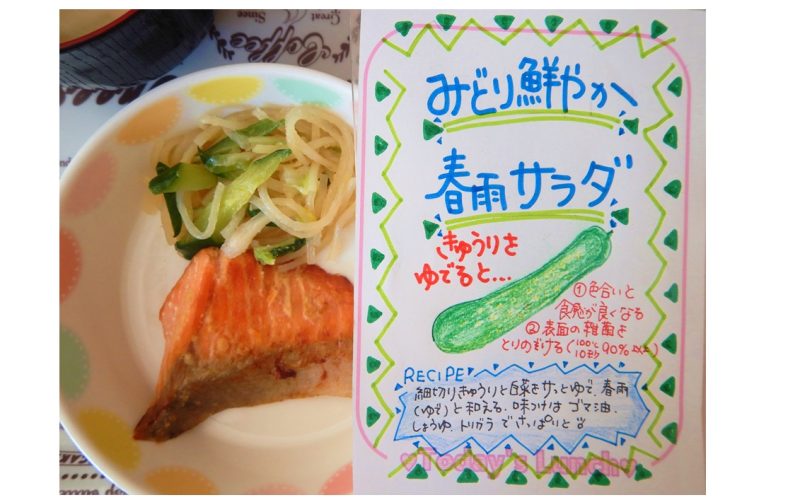 Great
Since
Coffee
みどり鮮やか
春雨サラダ
きゅうりを
ゆでると…
①色合いと
食感が良くなる
②表面の雑菌を
とりのぞける(100℃ 10秒 90%以上)
RECIPE
細切りきゅうりと白菜をサッとゆで、春雨
(ゆで)と和える。味つけは ゴマ油、
しょうゆ、トリガラ でさっぱりと
♡Today's Lunch♡